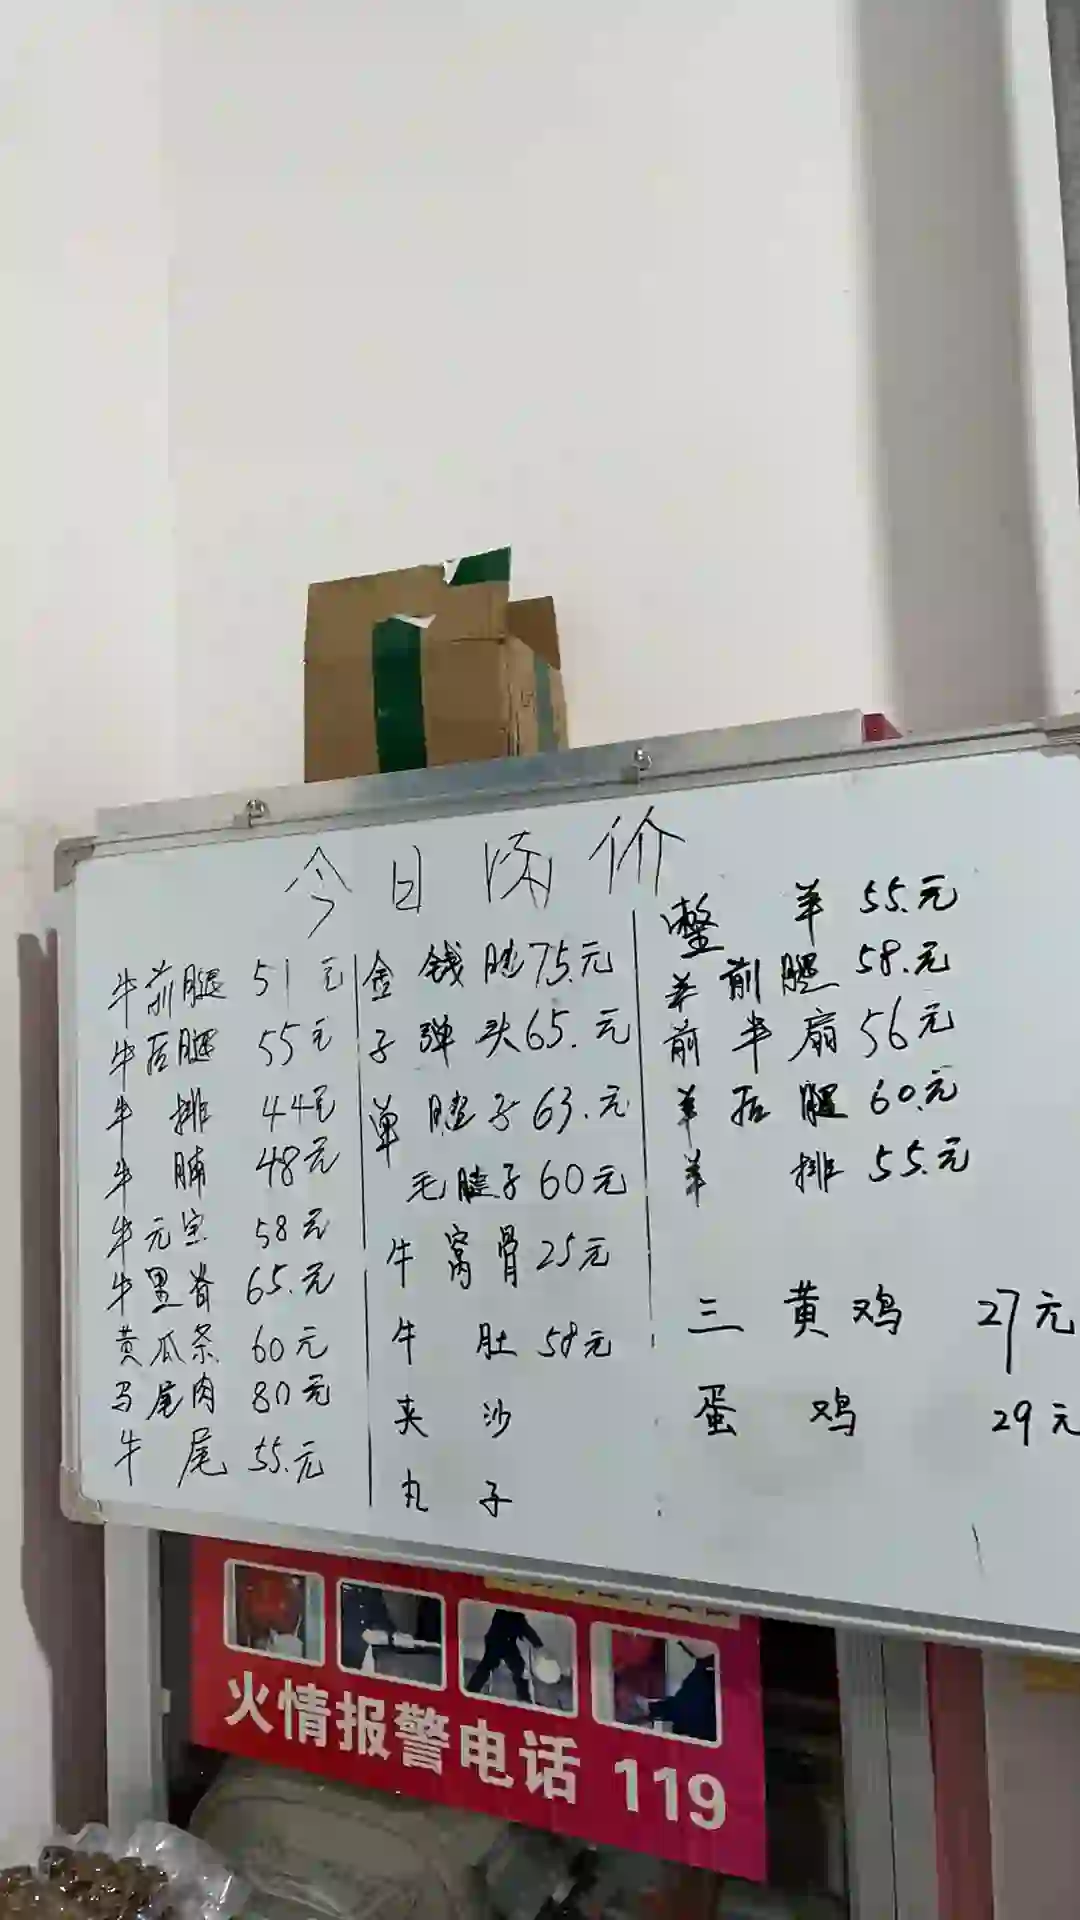 今日肉价
牛前腿 51元
牛后腿 55元
牛排 44元
牛腩 48元
牛元宝 58元
牛里脊 65.元
黄瓜条 60元
马尾肉 80元
牛尾 55.元
金钱腱 75.元
子弹头 65.元
单腱子 63.元
毛腱子 60元
牛窝骨 25元
牛肚 58元
夹沙
丸子
整羊 55.元
羊前腿 58.元
前半扇 56元
羊后腿 60.元
羊排 55.元
三黄鸡 27元
蛋鸡 29元
火情报警电话 119